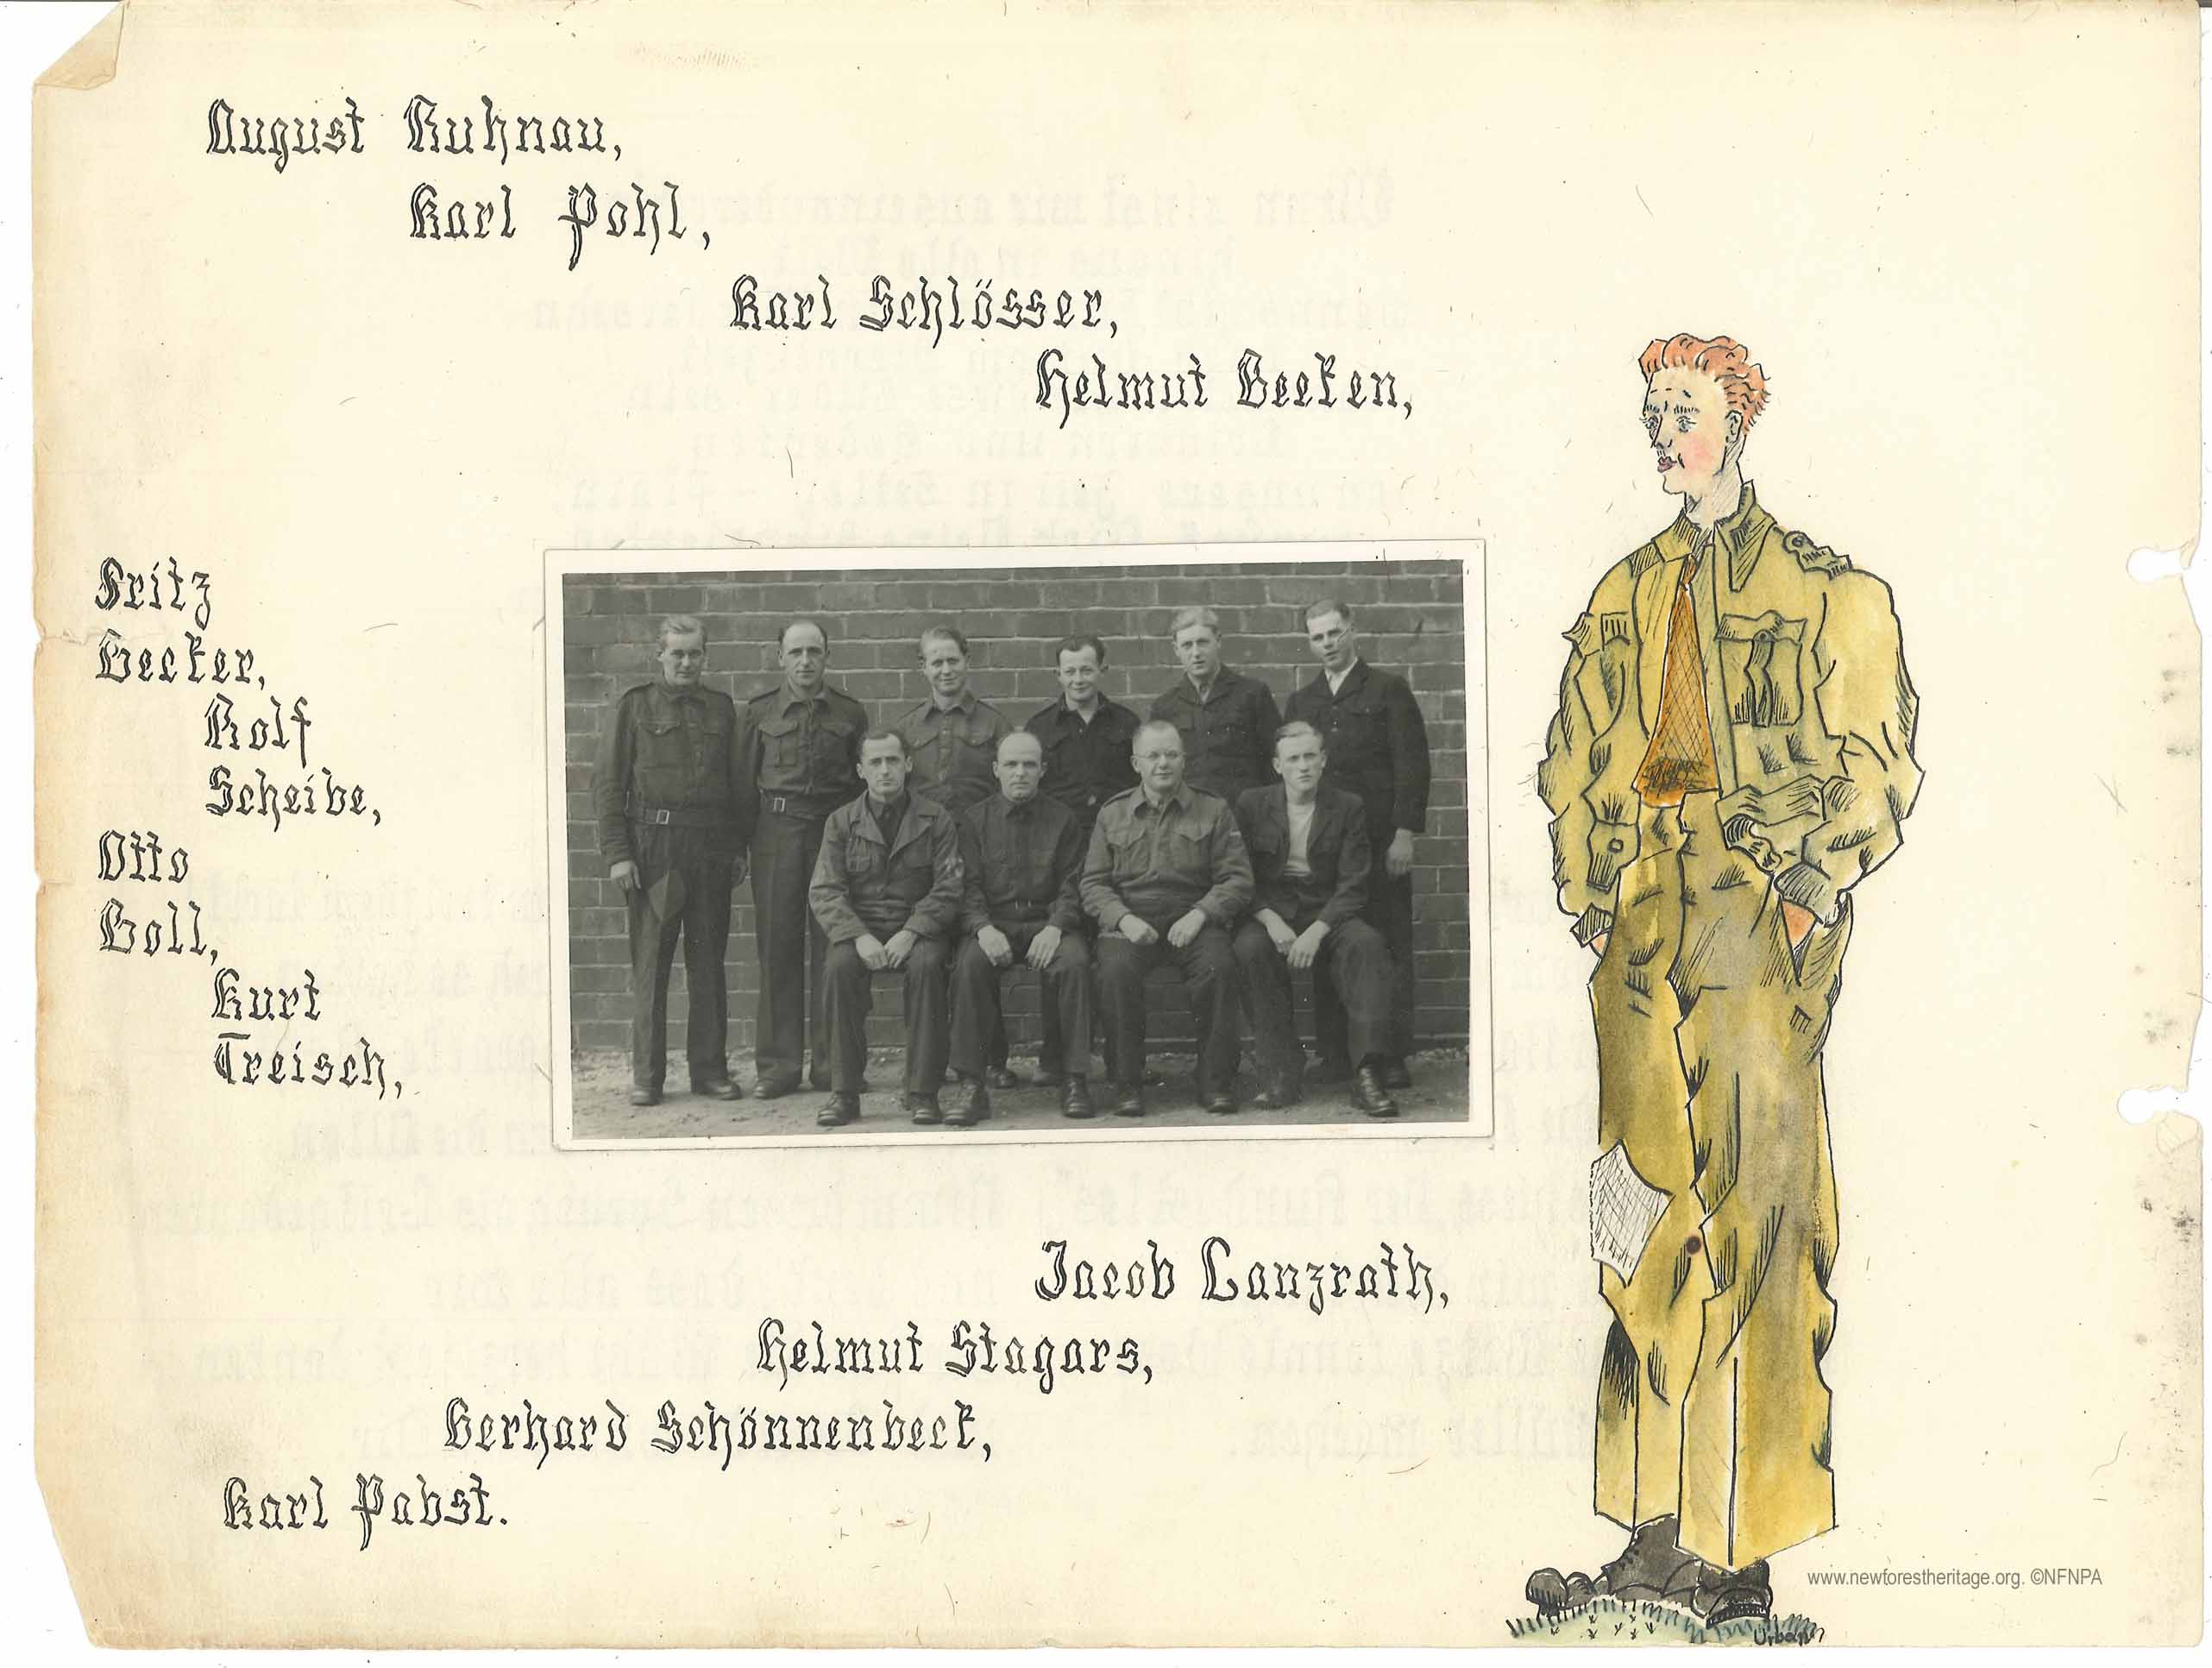 August Kuhnau,
Karl Pohl,
Karl Schlösser,
Helmut Beeken,
Fritz
Becker,
Rolf
Scheibe,
Otto
Boll,
Kurt
Treisch,
Jacob Lanzrath,
Helmut Stagars,
Gerhard Schönnenbeck,
Karl Pabst.
www.newforestheritage.org. ©NFNPA
Urban